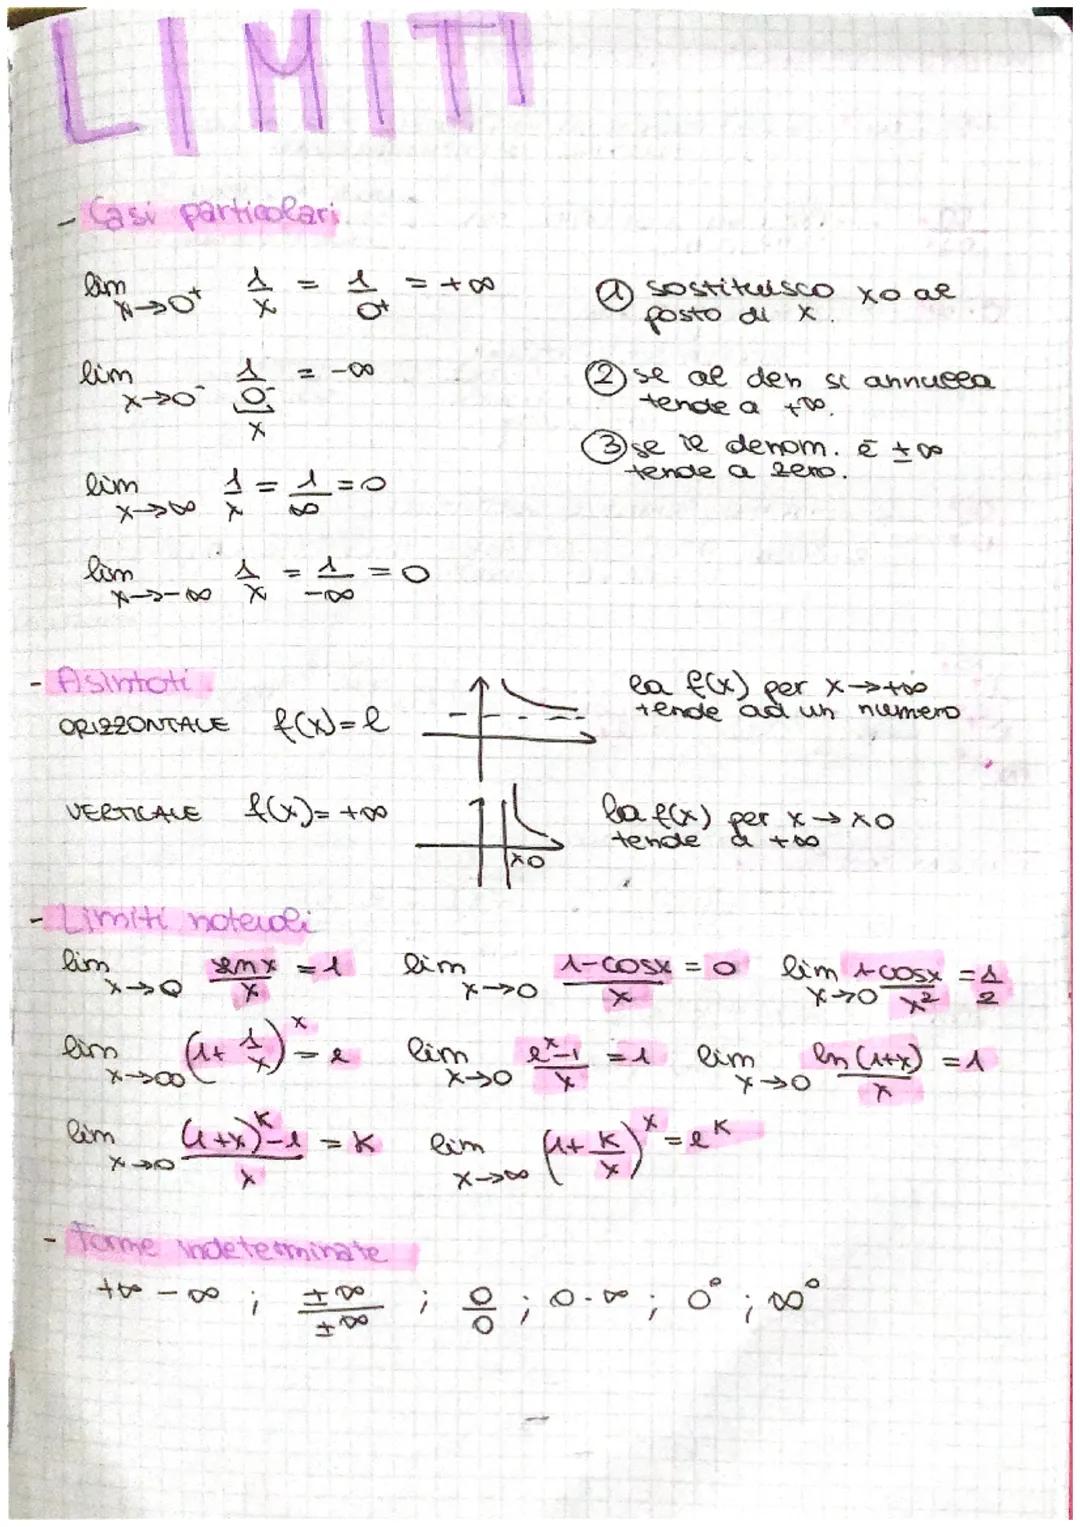 LIMITI
- Casi particolari
lim x→0⁺ 1/x = 1/0⁺ = +∞
① sostituisco x0 al
posto di x.
lim x→0⁻ 1/0⁻ = -∞
x
② se al den si annulla
tende a +∞.
③ se il denom. è ±∞
tende a zero.
lim x→∞ 1/x = 1/∞ = 0
lim x→-∞ 1/x = 1/-∞ = 0
- Asintoti
ORIZZONTALE f(x)=l
la f(x) per x→+∞
tende ad un numero
VERTICALE f(x)=+∞
x0
la f(x) per x→x0
tende a +∞
- Limiti notevoli
lim x→0 senx/x = 1 lim x→0 1-cosx/x = 0 lim x→0 1-cosx/x² = 1/2
lim x→∞ (1+1/x)ˣ = e lim x→0 eˣ-1/x = 1 lim x→0 ln(1+x)/x = 1
lim x→0 (1+x)ᴷ-1/x = K lim x→∞ (1+K/x)ˣ = eᴷ
- Forme indeterminate
+∞ - ∞ ; ±∞/±∞ ; 0/0 ; 0·∞ ; 0⁰ ; ∞⁰